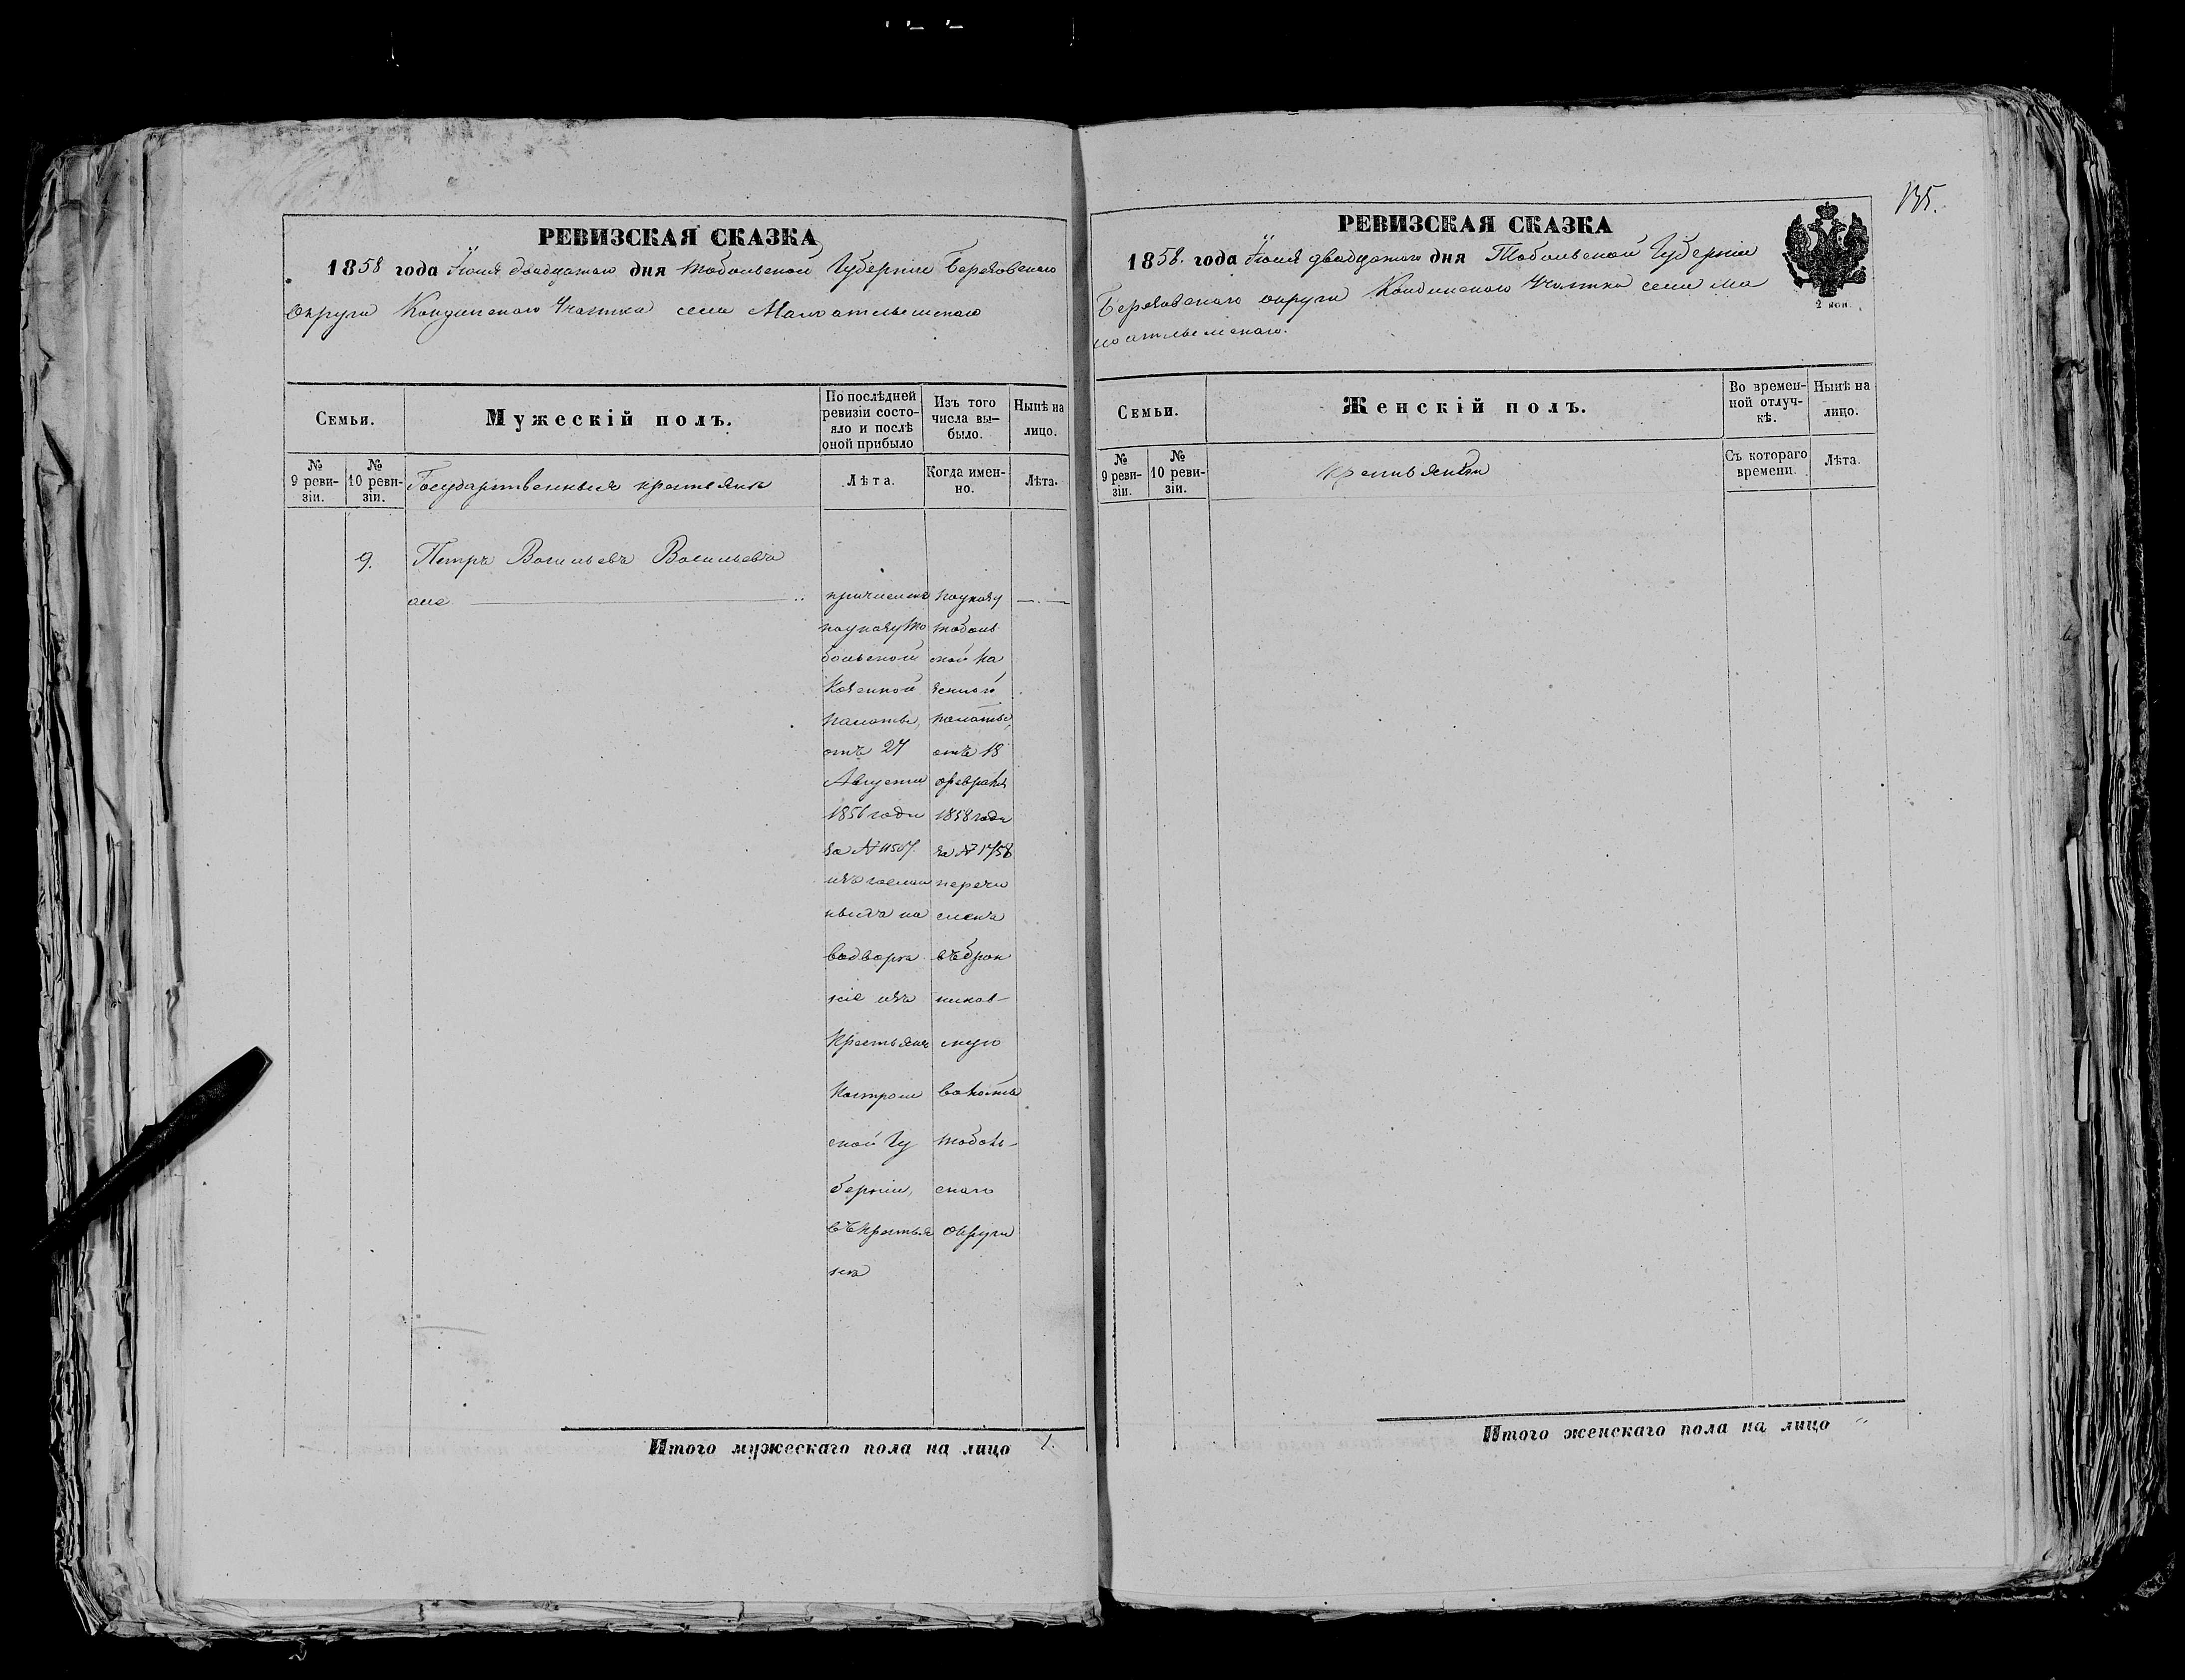 РЕВИЗСКАЯ СКАЗКА
1858 года Іюня двадцатаго дня Тобольской Губерніи Березовскаго
округа Кондинскаго Участка села Малоатлымскаго
Семьи.
Мужескій полъ.
По послѣдней ревизіи состояло и послѣ оной прибыло
Изъ того числа выбыло.
Нынѣ на лицо.
№ 9 ревизіи.
№ 10 ревизіи.
Государственныя крестьяне
Лѣта.
Когда именно.
Лѣта.
9.
Петръ Васильевъ Васильевъ
причисленъ
по указу То
больской
Казенной
палаты,
отъ 27
Августа
1856 года
за № 11507.
изъ
на
водворе
ніе изъ
Крестьянъ
Костром
ской Гу
берніи,
въ крестья
не
по указу
Тоболь
ской Ка
зенной
палаты,
отъ 18
февраля
1858 года
за № 1758
перечи
сленъ
въ Брон
ников-
скую
волость
Тоболь-
скаго
округа
Итого мужескаго пола на лицо
135.
РЕВИЗСКАЯ СКАЗКА
1858. года Іюня двадцатаго дня Тобольской Губерніи
Березовскаго округа Кондинскаго Участка села Ма
лоатлымскаго.
2 коп.
Семьи.
Женскій полъ.
Во временной отлучкѣ.
Нынѣ на лицо.
№ 9 ревизіи.
№ 10 ревизіи.
крестьянки
Съ котораго времени.
Лѣта.
Итого женскаго пола на лицо "